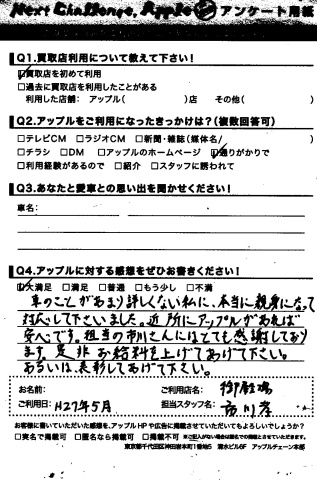 Next Challenge, Apple アンケート用紙
Q1.買取店利用について教えて下さい!
☑買取店を初めて利用
□過去に買取店を利用したことがある
利用した店舗: アップル( )店 その他( )
Q2.アップルをご利用になったきっかけは?(複数回答可)
□テレビCM □ラジオCM □新聞・雑誌(媒体名/ )
□チラシ □DM □アップルのホームページ ☑通りがかりで
□利用経験があるので □紹介 □スタッフに誘われて
Q3.あなたと愛車との思い出を聞かせください!
車名:
Q4.アップルに対する感想をぜひお書きください!
☑大満足 □満足 □普通 □もう少し □不満
車のことがあまり詳しくない私に、本当に親身になって
対応して下さいました。近所にアップルがあれば
安心です。担当の市川さんにはとても感謝しており
ます。是非お給料を上げてあげて下さい。
あるいは、表彰してあげて下さい。
お名前: ご利用店名:
ご利用日: H27年5月 担当スタッフ名: 市川
お客様に書いていただいた感想を、アップルHPや広告に掲載させていただいてもよろしいでしょうか?
□実名で掲載可 □匿名なら掲載可 □掲載不可 ※ご記入がない場合は匿名での掲載とさせていただきます。
東京都千代田区神田岩本町1番地5 清水ビル6F アップルチェーン本部